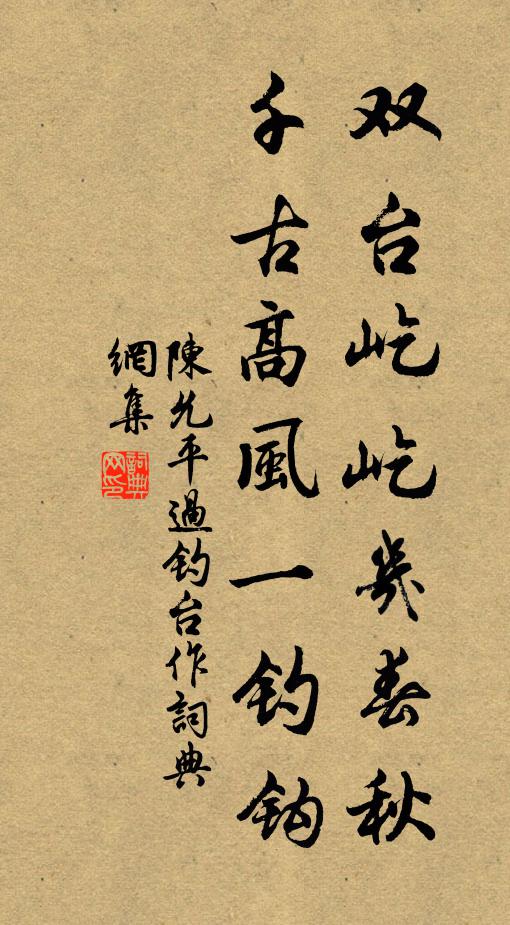 双台屹屹幾春秋
千古高風一钓鈎
陳允平過钓台作詞典
網集
詞典
网印